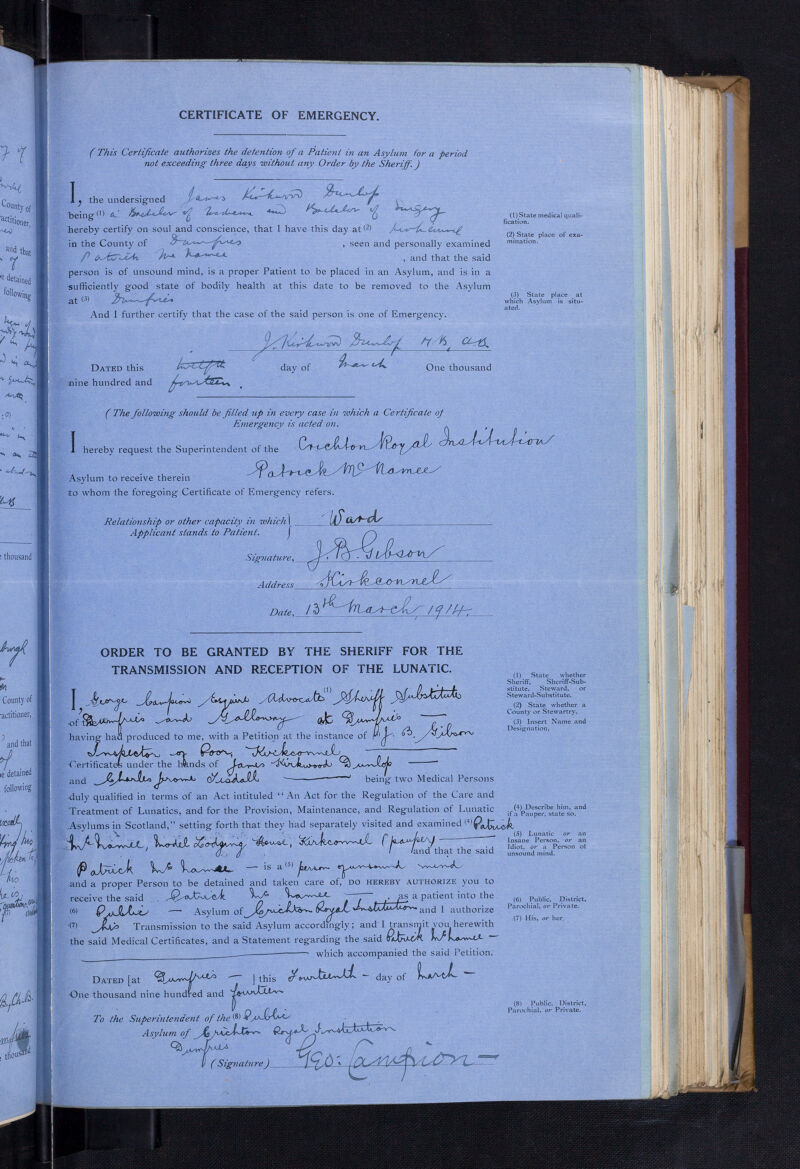 CERTIFICATE OF EMERGENCY.
( This Certificate authorizes the detention of a Patient in an Asylum for a period
not exceeding three days without any Order by the Sheriff. )
I, the undersigned James Kirkwood Dunlop
being (1) a Bachelor of Medicine and Bachelor of Surgery
hereby certify on soul and conscience, that I have this day at (2) Kirkconnel
in the County of Dumfries , seen and personally examined
Patrick Mc Namee , and that the said
person is of unsound mind, is a proper Patient to be placed in an Asylum, and is in a
sufficiently good state of bodily health at this date to be removed to the Asylum
at (3) Dumfries
And I further certify that the case of the said person is one of Emergency.
J. Kirkwood Dunlop M.B,
DATED this twelfth day of March One thousand
nine hundred and fourteen .
(1) State medical quali-
fication.
(2) State place of exa-
mination.
(3) State place at
which Asylum is situ-
ated.
( The following should be filled up in every case in which a Certificate of
Emergency is acted on.
I hereby request the Superintendent of the Crichton Royal Institution
Asylum to receive therein Patrick McNamee
to whom the foregoing Certificate of Emergency refers.
Relationship or other capacity in which
Applicant stands to Patient. } Ward
Signature, J. B. Gibson
Address Kirkconnel
Date, 13th March, 1914.
ORDER TO BE GRANTED BY THE SHERIFF FOR THE
TRANSMISSION AND RECEPTION OF THE LUNATIC.
I, George Campion Esquire Advocate (1) Sheriff Substitute
of Dumfries and Galloway at Dumfries
having had produced to me, with a Petition at the instance of J. B. Gibson
Inspector of Poor, Kirkconnel
Certificates under the hands of James Kirkwood Dunlop
and Charles Jerome Tisdall being two Medical Persons
duly qualified in terms of an Act intituled "An Act for the Regulation of the Care and
Treatment of Lunatics, and for the Provision, Maintenance, and Regulation of Lunatic
Asylums in Scotland," setting forth that they had separately visited and examined (4) Patrick
McNamee, Model Lodging House, Kirkconnel (pauper)
and that the said
Patrick Mc Namee — is a (5) person of unsound mind
and a proper Person to be detained and taken care of, DO HEREBY AUTHORIZE you to
receive the said Patrick Mc Namee as a patient into the
(6) Public — Asylum of Crichton Royal Institution and I authorize
(7) his Transmission to the said Asylum accordingly; and I transmit you herewith
the said Medical Certificates, and a Statement regarding the said Patrick McNamee —
which accompanied the said Petition.
DATED [at Dumfries — ] this Fourteenth — day of March —
One thousand nine hundred and fourteen
To the Superintendent of the (8) Public
Asylum of Crichton Royal Institution
Dumfries
(Signature) Geo: Campion —
(1) State whether
Sheriff, Sheriff-Sub-
stitute, Steward, or
Steward-Substitute.
(2) State whether a
County or Stewartry.
(3) Insert Name and
Designation.
(4) Describe him, and
if a Pauper, state so.
(5) Lunatic or an
Insane Person, or an
Idiot, or a Person of
unsound mind.
(6) Public, District,
Parochial, or Private.
(7) His, or her.
(8) Public, District,
Parochial, or Private.
County of
and that
detained
following
thousand
County of
and that
detained
following